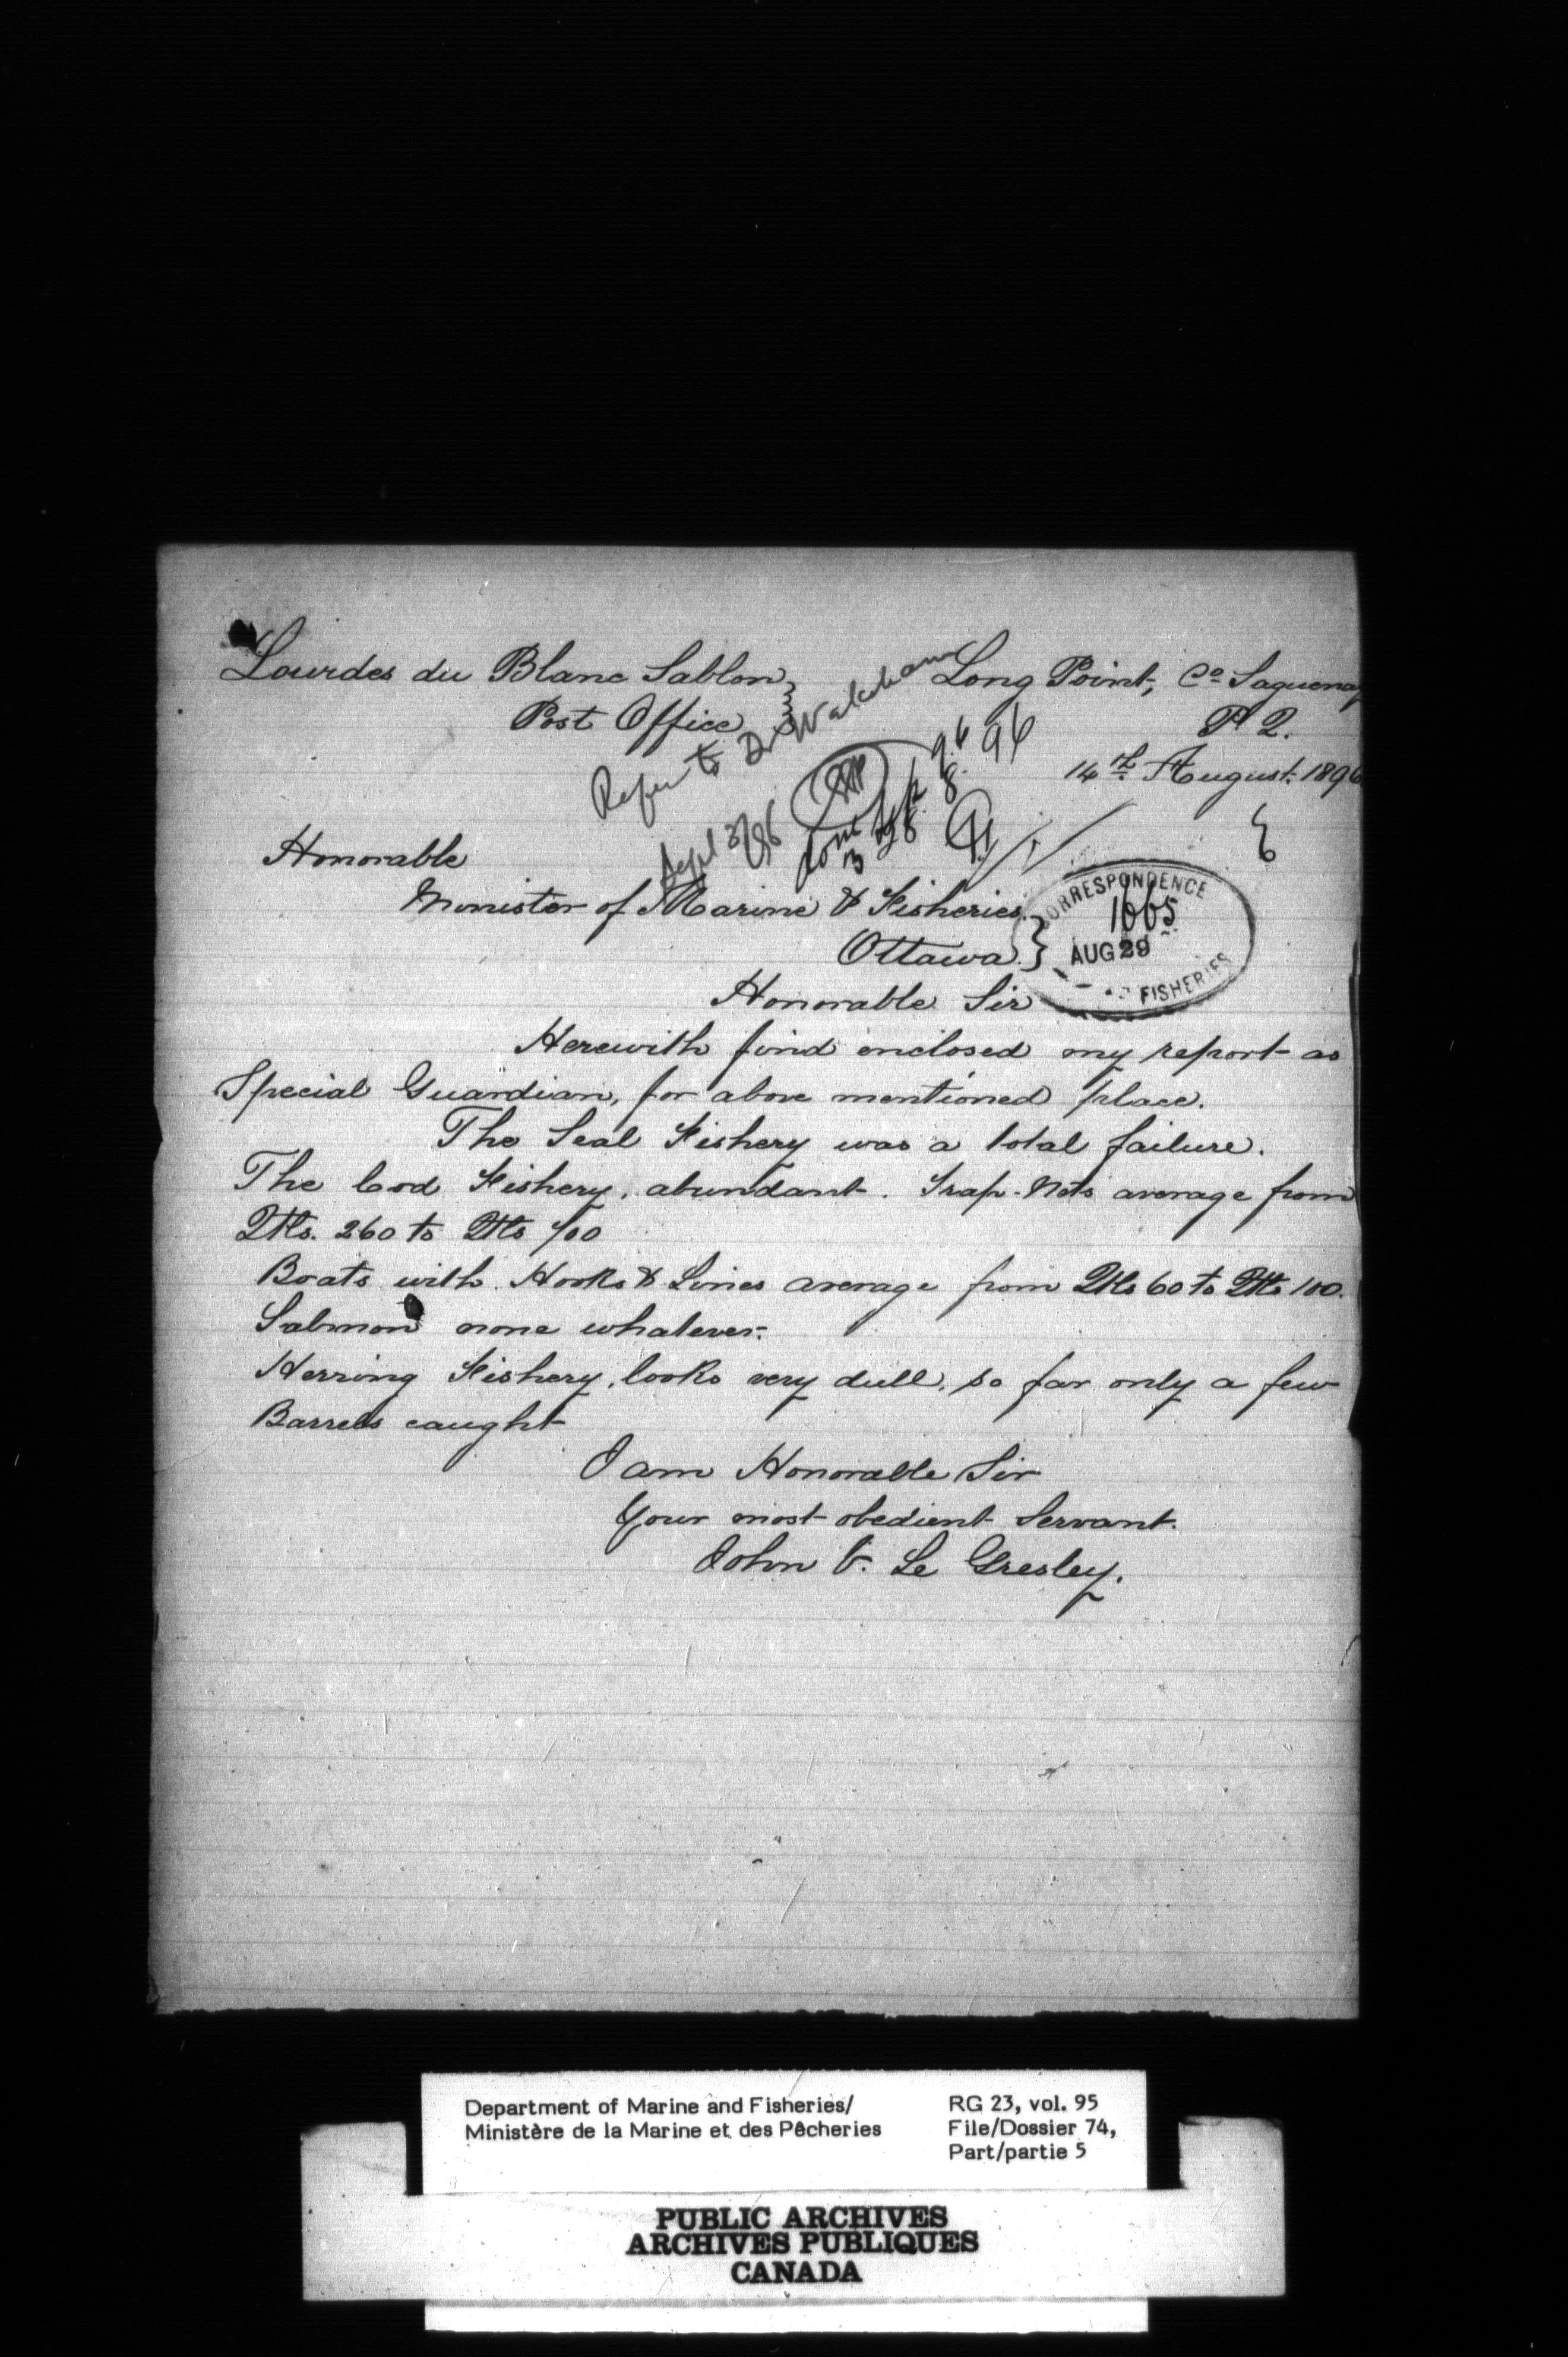 Lourdes du Blanc Sablon
Post Office
Long Point, Co Saguenay
P Q.
14th August. 1896
Refer to Dr Wakeham
Sept 3/96
Honorable
Minister of Marine & Fisheries.
Ottawa.
CORRESPONDENCE
1665
AUG 29
FISHERIES
Honorable Sir
Herewith find enclosed my report as
Special Guardian, for above mentioned place.
The Seal Fishery was a total failure.
The Cod Fishery, abundant. Trap-Nets average from
Qtls. 260 to Qtls 400
Boats with Hooks & Lines average from Qtls 60 to Qtls 100.
Salmon none whatever.
Herring Fishery, looks very dull, so far only a few
Barrels caught
I am Honorable Sir
Your most obedient Servant.
John V. Le Gresley.
Department of Marine and Fisheries/
Ministère de la Marine et des Pêcheries
RG 23, vol. 95
File/Dossier 74,
Part/partie 5
PUBLIC ARCHIVES
ARCHIVES PUBLIQUES
CANADA